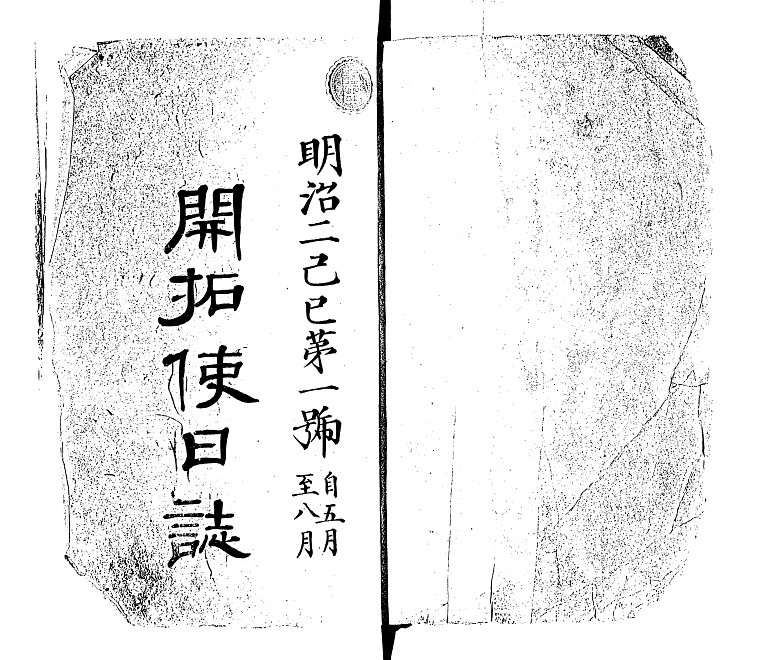 明治二己巳第一號
自五月
至八月
開拓使日誌